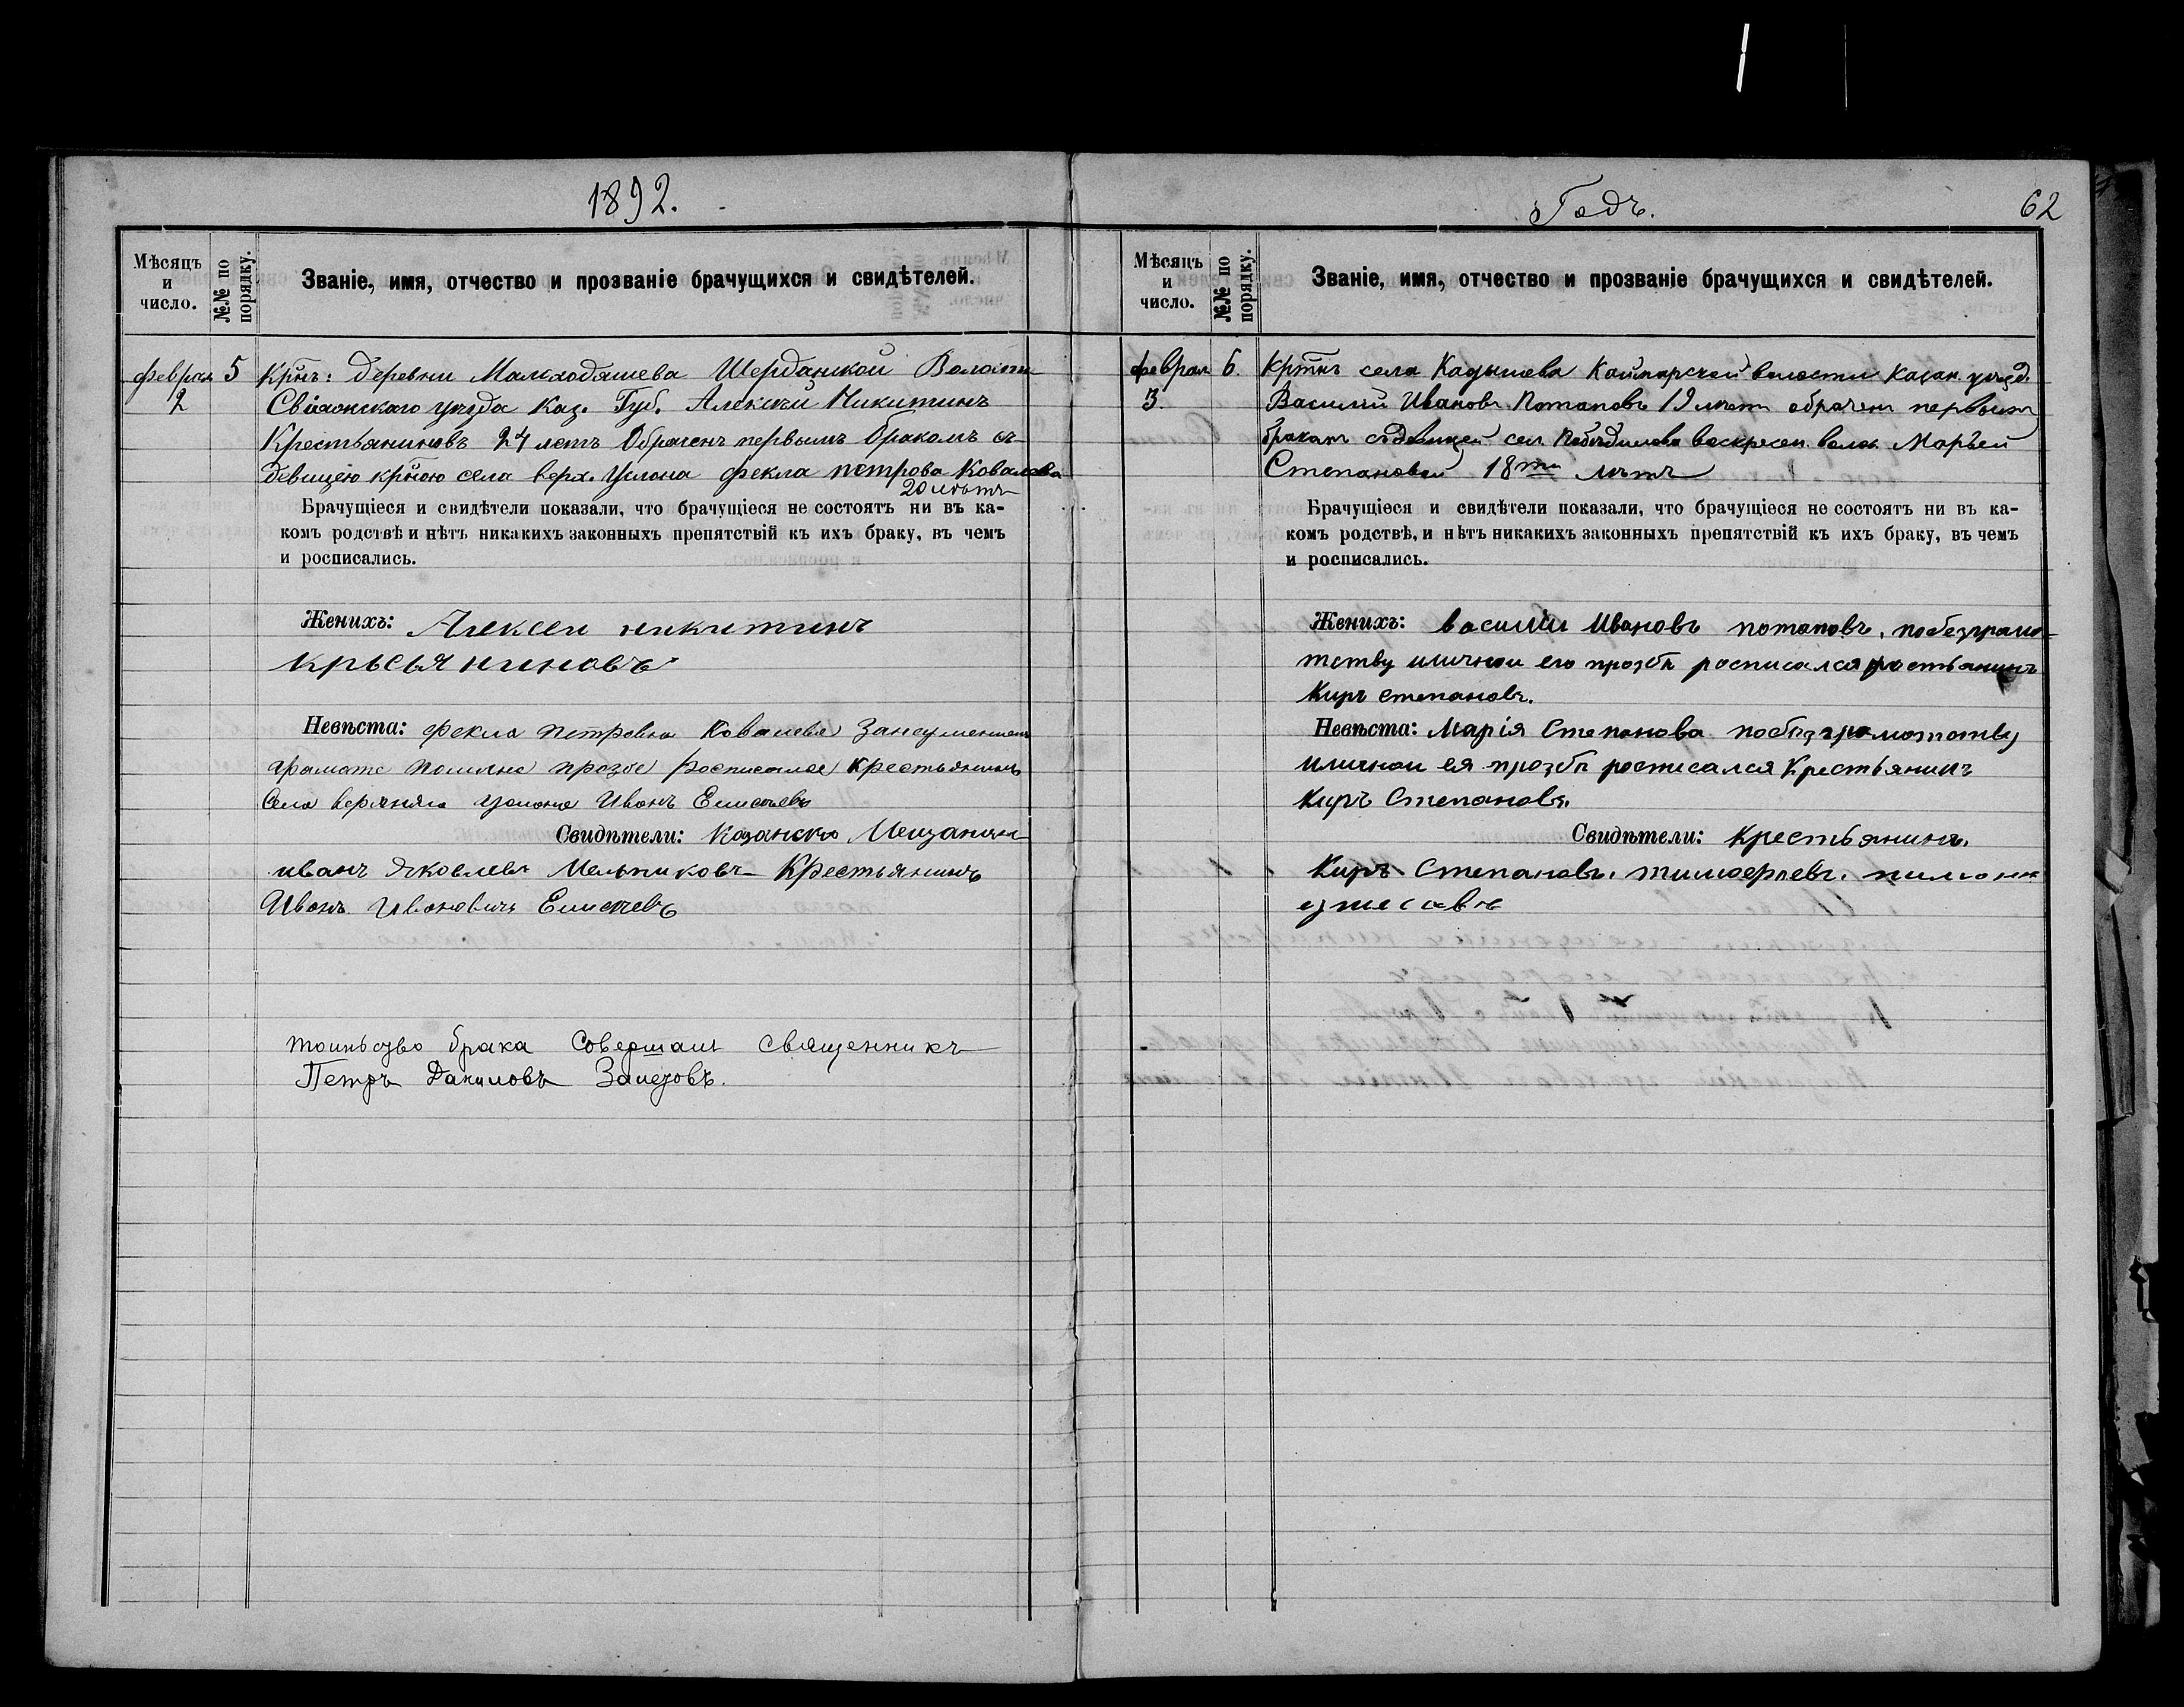 1892.
Мѣсяцъ и число.
№№ по порядку.
Званіе, имя, отчество и прозваніе брачущихся и свидѣтелей.
феврал 5 Крнъ: деревни Малкходяшева Ширданской Волости
2 Свіяжскаго уѣзда Каз. Губ. Алексѣй Никитинъ
Крестьяниновъ 24 летъ Обраченъ первымъ бракомъ съ
девицею крною села верх. Услона фекла петрова Ковалева
20 лѣтъ
Брачущіеся и свидѣтели показали, что брачущіеся не состоятъ ни въ ка-
комъ родствѣ и нѣтъ никакихъ законныхъ препятствій къ ихъ браку, въ чемъ
и росписались.
Женихъ: Алексеи никитинъ
крьсьяниновъ
Невѣста: Фекла петровна Ковалева
грамате прозбе росписалса крестьянинъ
Села верхняго услона Иванъ Елисеевъ
Свидѣтели: Казански Мещанин
иванъ Яковлевъ Мельниковъ Крестьянинъ
Иванъ Ивановичъ Елисеевъ
брака Совершалъ Священникъ
Петръ Даниловъ Залетовъ.
Годъ.
62
Мѣсяцъ и число.
№№ по порядку.
Званіе, имя, отчество и прозваніе брачущихся и свидѣтелей.
феврал 6. Кртнъ села Кадышева Каймарской волости Казан. уѣзд.
3. Василій Ивановъ Потаповъ 19 лѣтъ обраченъ первымъ
бракомъ съ девицей сел. Победилова воскресен. волос. Марьей
Степановой 18ти лѣтъ
Брачущіеся и свидѣтели показали, что брачущіеся не состоятъ ни въ ка-
комъ родствѣ, и нѣтъ никакихъ законныхъ препятствій къ ихъ браку, въ чемъ
и росписались.
Женихъ: василіи Ивановъ потаповъ, по безграмо-
тству иличнои его прозбѣ росписался крестьянинъ
Киръ степановъ.
Невѣста: Марія Степанова побѣзграмотству
иличнои ея прозбѣ росписался Крестьянинъ
Киръ Степановъ.
Свидѣтели: Крестьянинъ.
Киръ Степановъ. тимоерпевъ.